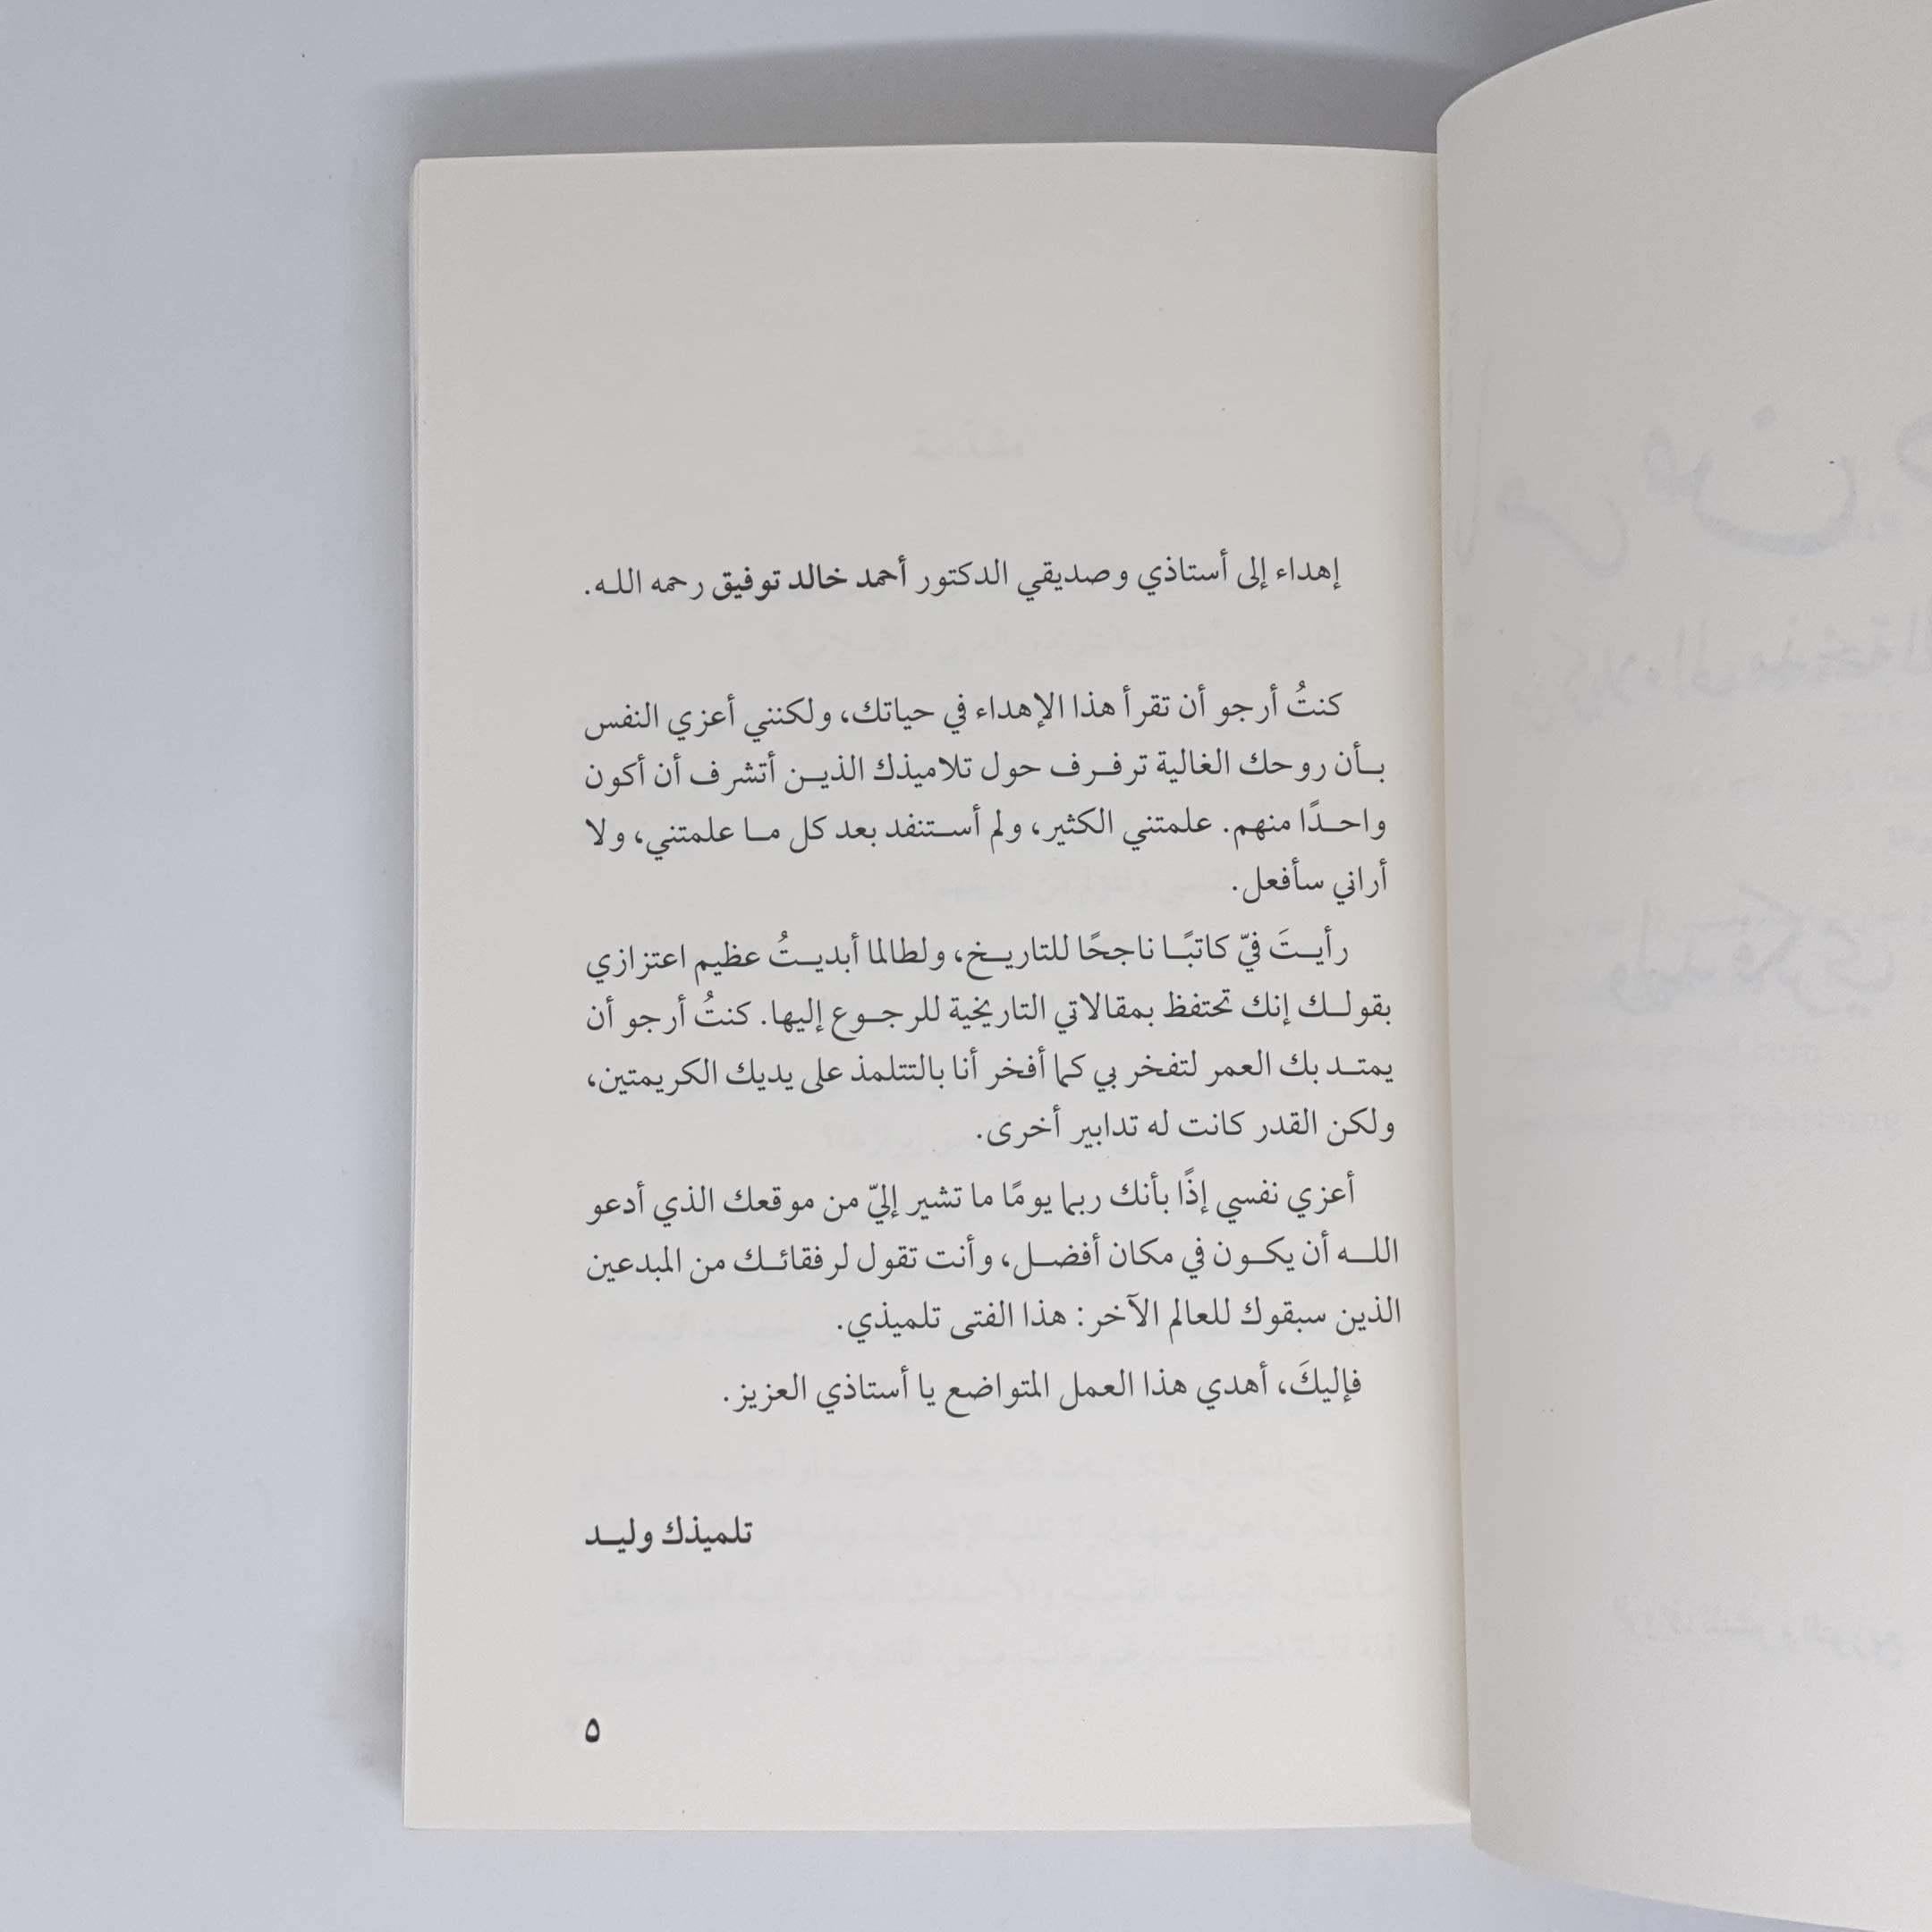 إهداء إلى أستاذي وصديقي الدكتور أحمد خالد توفيق رحمه الله.
كنتُ أرجو أن تقرأ هذا الإهداء في حياتك، ولكنني أعزي النفس
بأن روحك الغالية ترفرف حول تلاميذك الذين أتشرف أن أكون
واحدًا منهم. علمتني الكثير، ولم أستنفد بعد كل ما علمتني، ولا
أراني سأفعل.
رأيتَ فيّ كاتبًا ناجحًا للتاريخ، ولطالما أبديتُ عظيم اعتزازي
بقولك إنك تحتفظ بمقالاتي التاريخية للرجوع إليها. كنتُ أرجو أن
يمتد بك العمر لتفخر بي كما أفخر أنا بالتتلمذ على يديك الكريمتين،
ولكن القدر كانت له تدابير أخرى.
أعزي نفسي إذًا بأنك ربما يومًا ما تشير إليّ من موقعك الذي أدعو
الله أن يكون في مكان أفضل، وأنت تقول لرفقائك من المبدعين
الذين سبقوك للعالم الآخر: هذا الفتى تلميذي.
فإليكَ، أهدي هذا العمل المتواضع يا أستاذي العزيز.
تلميذك وليد
٥